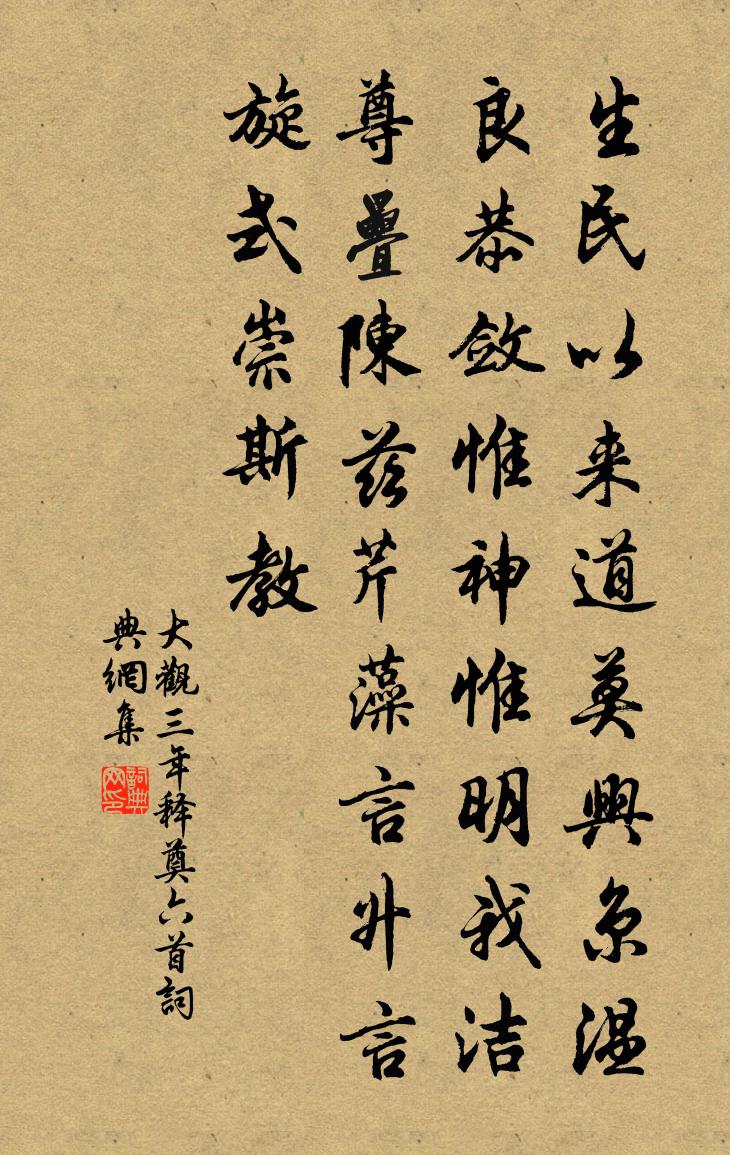 生民以来道莫與京温
良恭敛惟神惟明我洁
尊疊陳兹芹藻言升言
旋式崇斯教
大觀三年释奠六首詞
典網集
詞典
网印